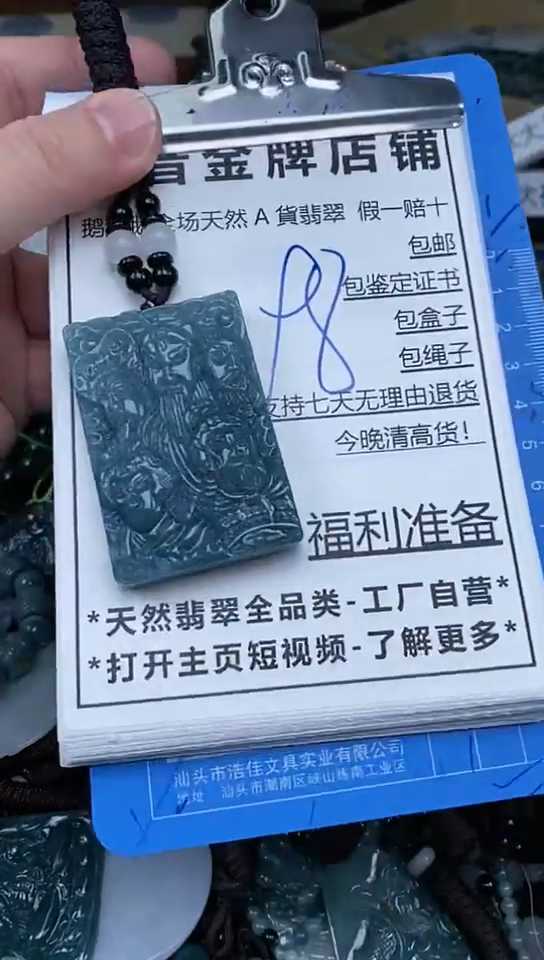 金牌店铺
全场天然 A 貨翡翠 假一赔十
包邮
包鉴定证书
包盒子
包绳子
支持七天无理由退货
今晚清高货!
98
福利准备
*天然翡翠全品类-工厂自营*
*打开主页短视频-了解更多*
汕头市浩佳文具实业有限公司
地址 汕头市潮南区峡山练南工业区
1
2
3
4
5
6